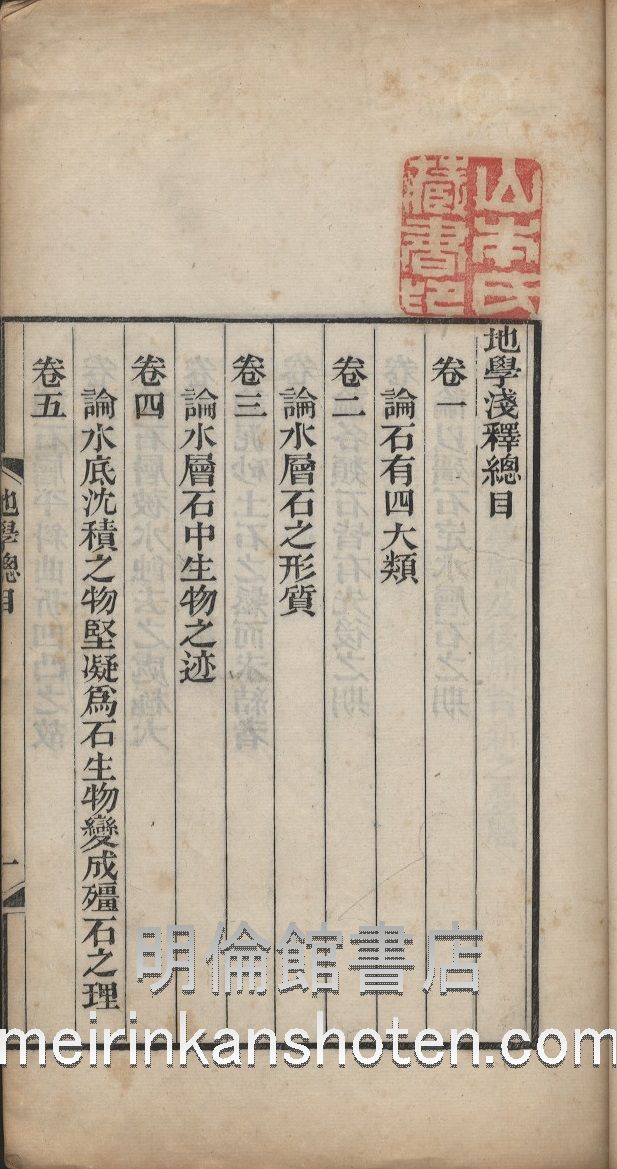 山本氏
藏書記
地學淺釋總目
卷一
論石有四大類
卷二
論水層石之形質
卷三
論水層石中生物之迹
卷四
論水底沈積之物堅凝爲石生物變成殭石之理
卷五
地學總目
一
明倫館書店
meirinkanshoten.com